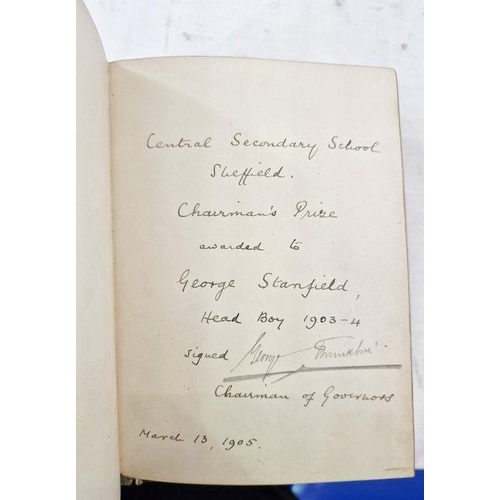 Central Secondary School
Sheffield.
Chairman's Prize
awarded to
George Stanfield,
Head Boy 1903-4
signed George
Chairman of Governors
March 13, 1905.